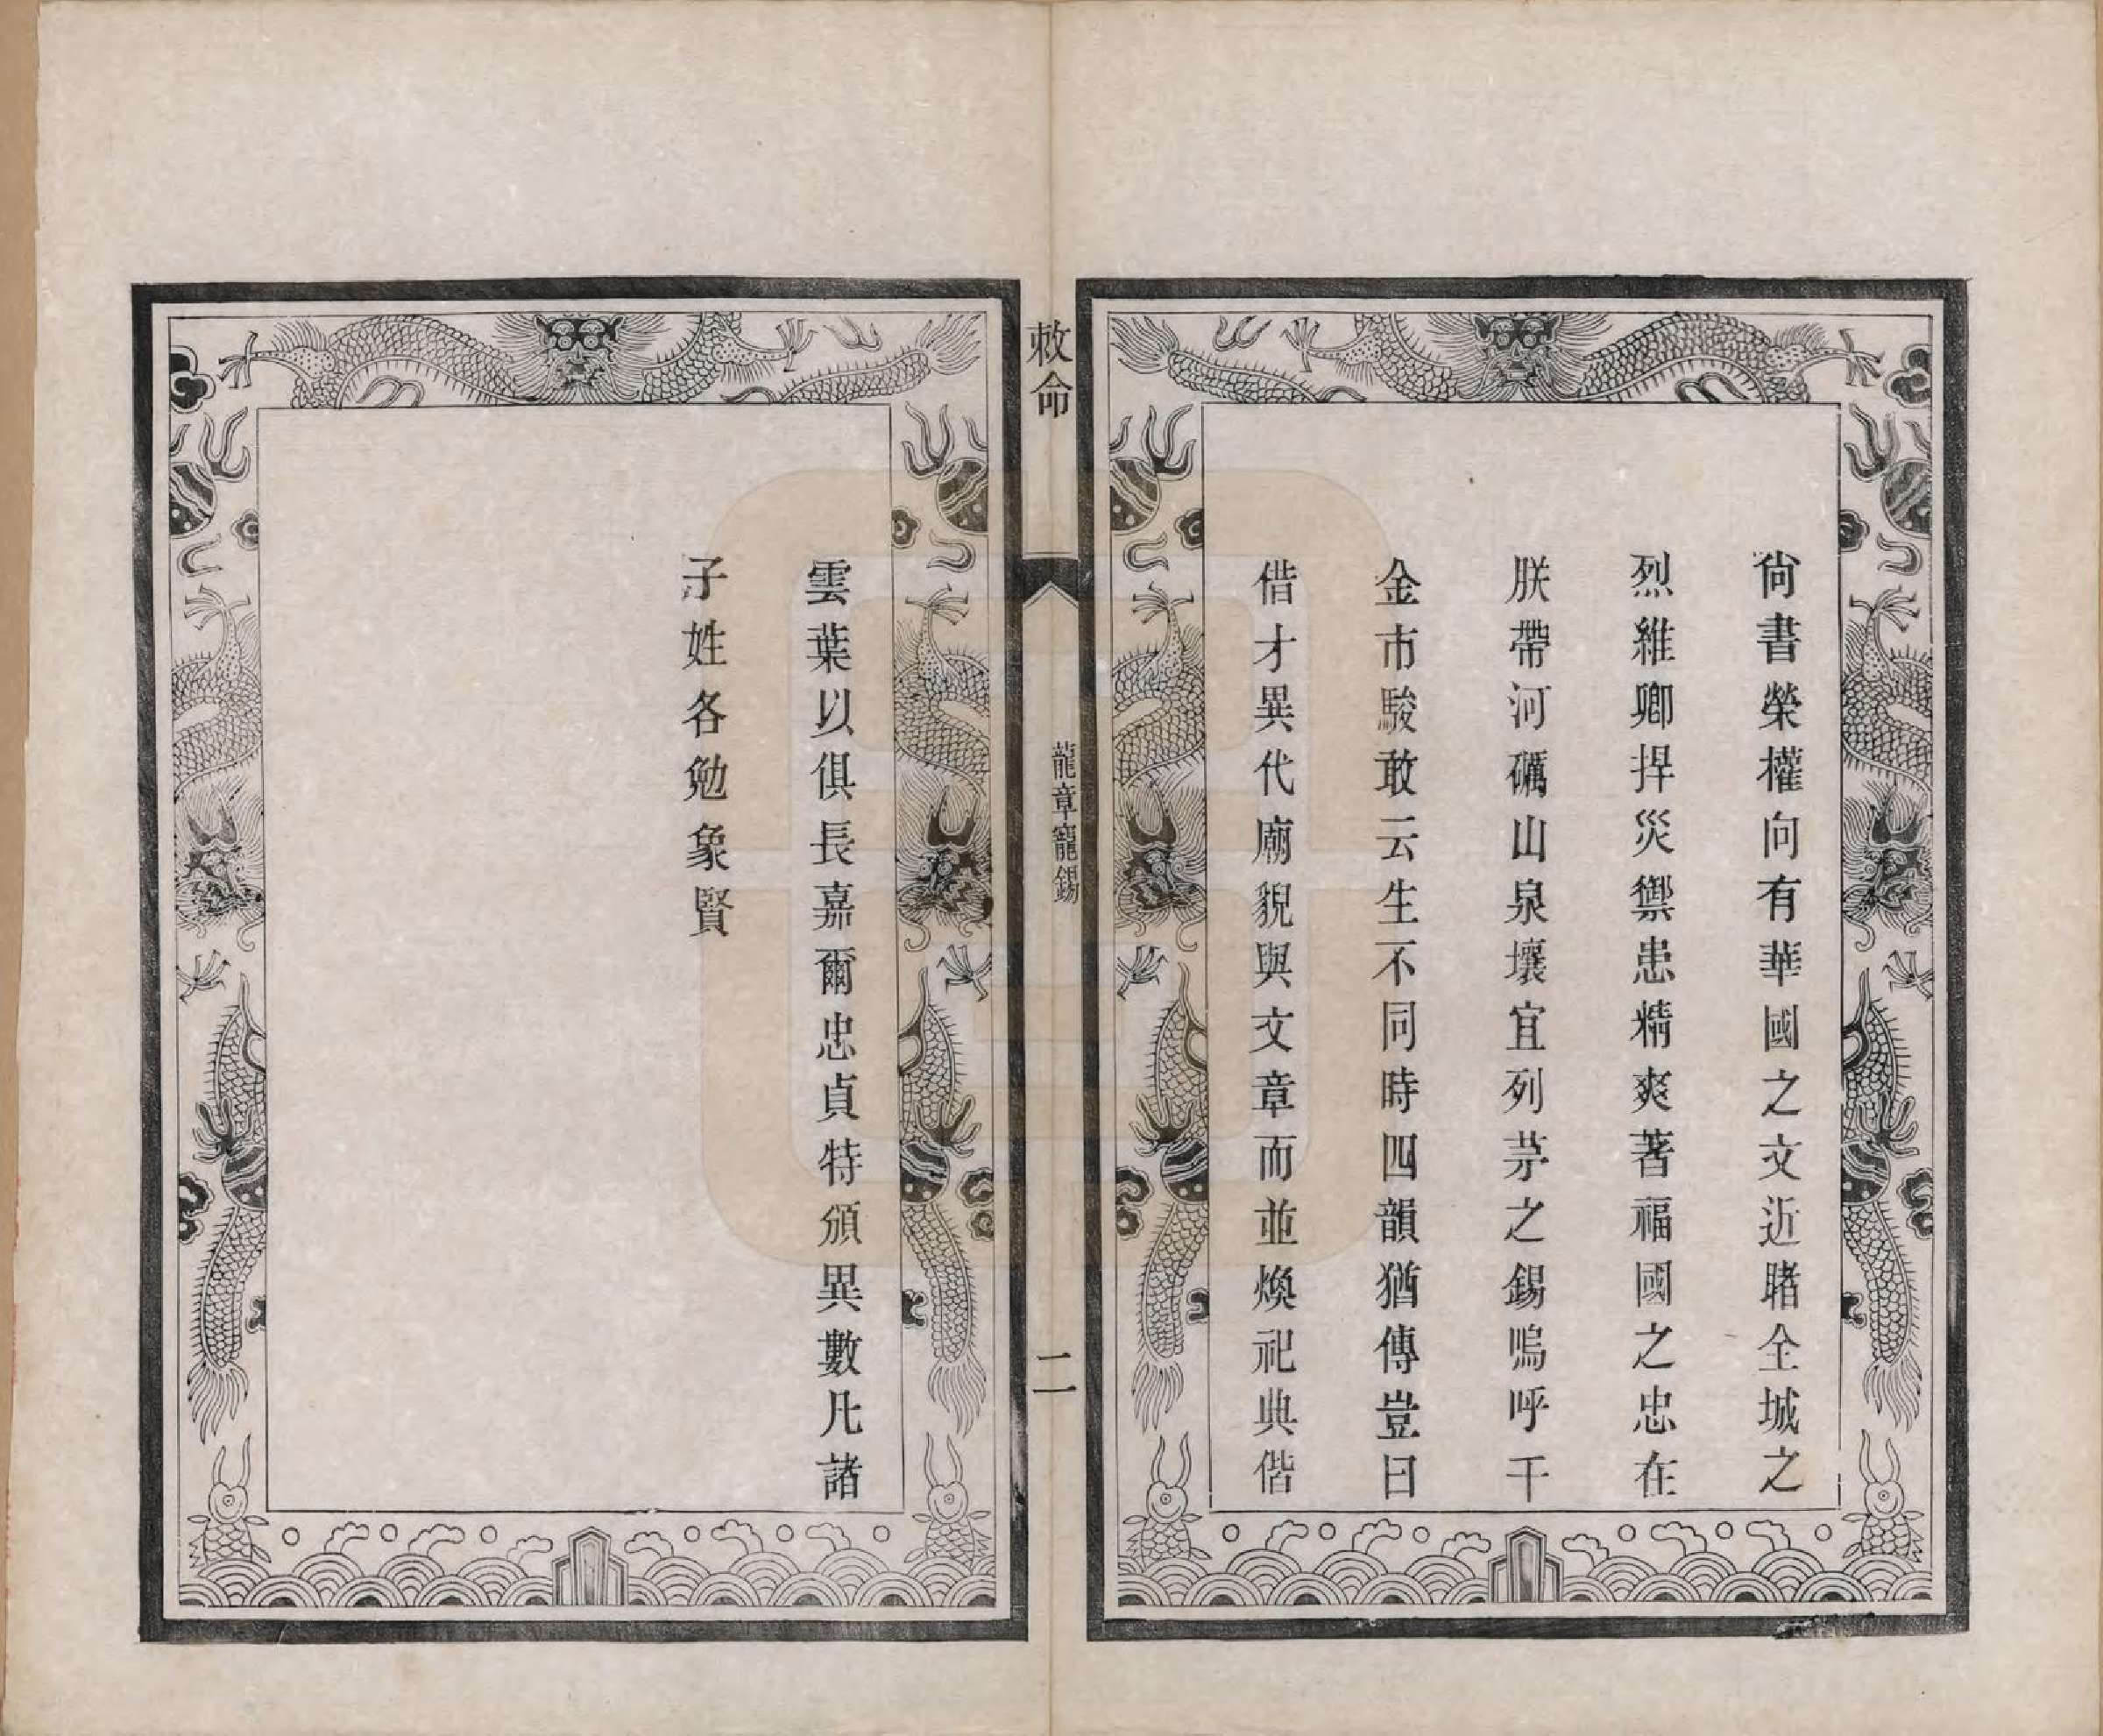 尙書榮權向有華國之文近睹全城之
烈維卿捍災禦患精爽著福國之忠在
朕帶河礪山泉壤宜列茅之錫嗚呼千
金市駿敢云生不同時四韻猶傳豈曰
借才異代廟貌與文章而並煥祀典偕
敕命
龍章寵錫
二
雲葉以俱長嘉爾忠貞特頒異數凡諸
子姓各勉象賢